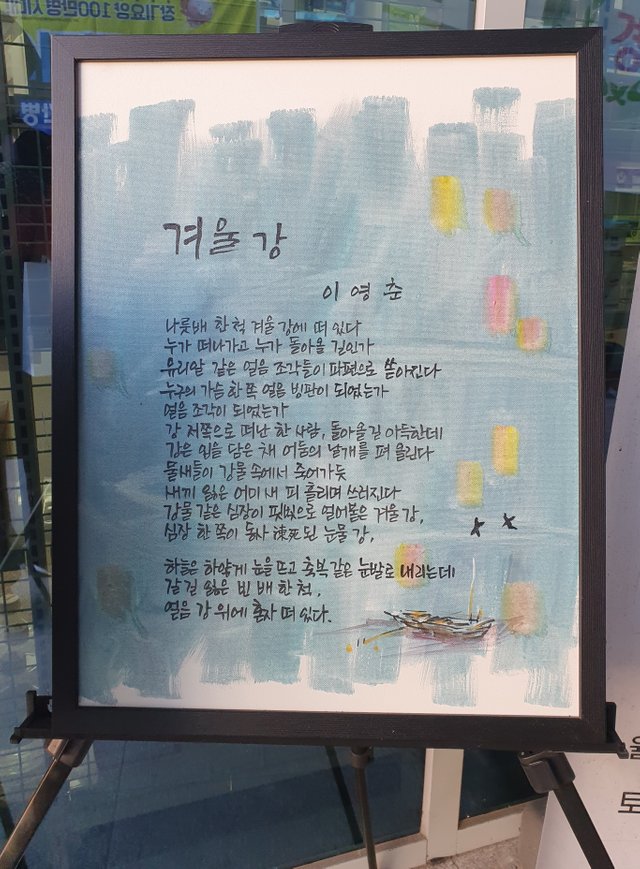 겨울 강
이 영 춘
나룻배 한 척 겨울 강에 떠 있다
누가 떠나가고 누가 돌아올 길인가
유리알 같은 얼음 조각들이 파편으로 쏟아진다
누구의 가슴 한 쪽 얼음 빙판이 되었는가
얼음 조각이 되었는가
강 저쪽으로 떠난 한 사람, 돌아올 길 아득한데
강은 입을 닫은 채 어둠의 날개를 펴 올린다
물새들이 강물 속에서 죽어가듯
새끼 잃은 어미 새 피 흘리며 쓰러진다
강물 같은 심장이 핏빛으로 얼어붙은 겨울 강,
심장 한 쪽이 동사 凍死 된 눈물 강,
하늘은 하얗게 눈을 뜨고 축복 같은 눈발로 내리는데
갈 길 잃은 빈 배 한 척,
얼음 강 위에 혼자 떠 있다.
장기요양 100만명시대
월
토